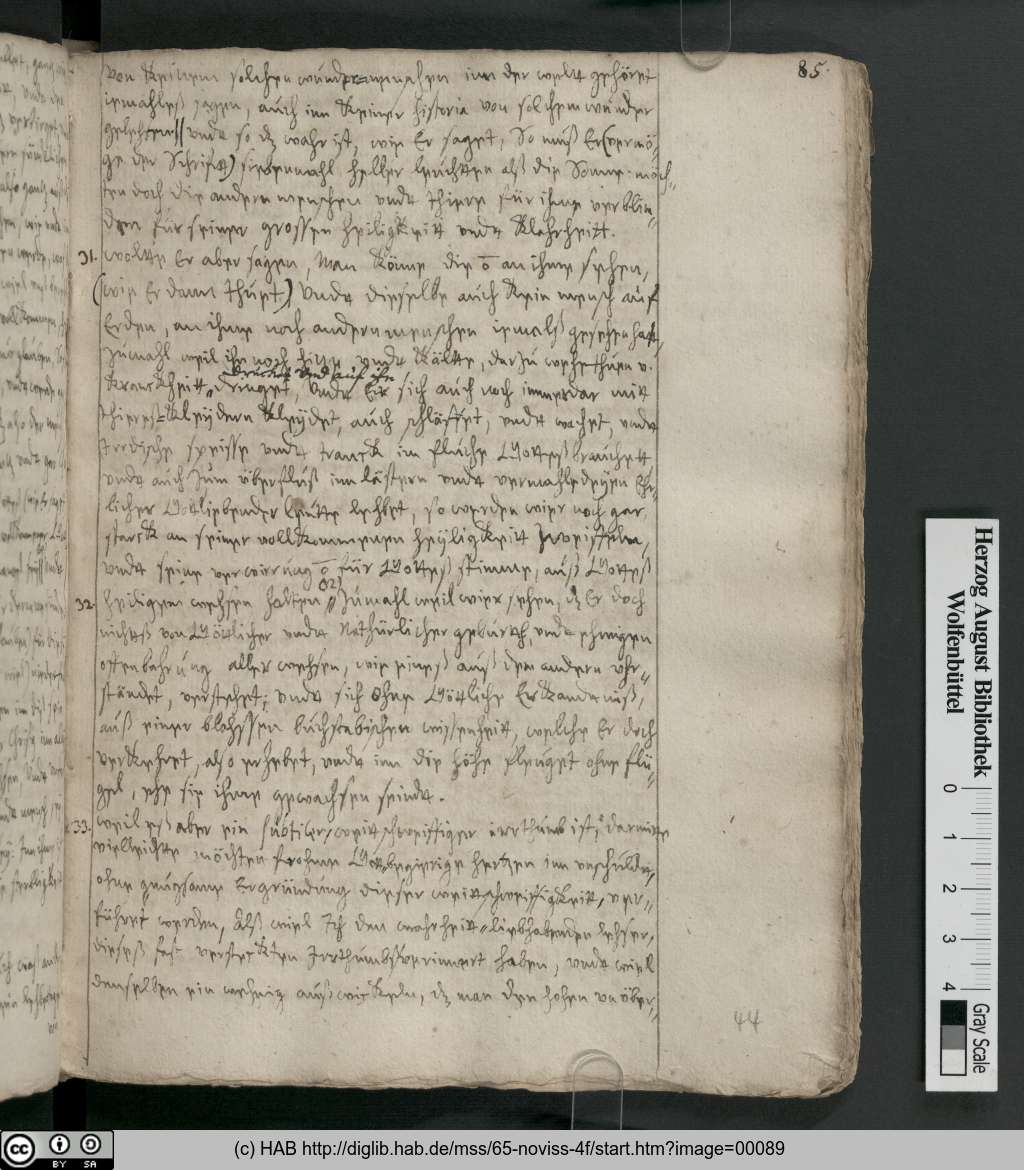 85.
von keinem solchen wunder-menschen inn der weltt gehöret
iemahlß sagen, auch inn keiner historia von solchem wunder
gelesen // undt so dz wahr ist, wie Er saget, So muß Er (vermö-
ge der Schrifft) siebenmahl heller leuchtten alß die Sonne: möch-
ten doch die andern menschen undt thiere für ihme verblin-
den für seiner grossen heiligkeitt undt Klahrheitt.
31. woltte Er aber sagen, Man könne die o an ihme sehen,
(wie Er dann thuet) Undt dieselbe auch kein mensch auf
Erden, an ihme noch andern menschen iemalß gesehen hatt,
Zumahl weil ihn noch hitze undt Kältte, darzu wehethuen v.
kranckheitt, drucket und auf ihn
dringet, Undt Er sich auch noch immerdar mitt
thieres-kleydern kleydet, auch schläffet, undt wachet, undt
Irrdische speisse undt tranck im fluche Gottes brauchett
undt auch zum überfluß inn lästern undt vermahledeyen Ehr-
licher Gottliebender leutte lebet, so werden wier noch gar
starck an seiner vollkommenen heyligkeitt zweiffeln,
undt seine verwirrung o für Gottes stimme, auß Gottes
32. heiligem wehsen haltten // Zumahl weil wier sehen, dz Er doch
nichtß von Göttlicher undt Nathürlicher geburth, undt ehwigen
offenbahrung aller wehsen, wie eineß auß dem andern uhr-
ständet, verstehet; undt sich ohne Göttliche Erkandtnuß,
auß einer blossen buchstabischen wissenheitt, welche Er doch
verkehret, also erhebet, undt inn die höhe fleuget ohne flü-
gel, ehe sie ihme gewachsen seindt.
33. weil eß aber ein subtiler, weittschweiffiger irrthumb ist, darmitte
vielleichtte möchten frohme Gottbegierige hertzen inn unschuldt,
ohne genugsame Ergründung dieser weittschweiffigkeitt, ver-
führet werden, Alß wiel Ich den wahrheitt-liebhabenden lehser,
dieses fest versteckten Irrthumbs erinnert haben, undt wiel
demselben ein wehnig außwickeln, dz man den hohen un über-
44
Herzog August Bibliothek
Wolfenbüttel
0 1 2 3 4
Gray Scale
(c) HAB http://diglib.hab.de/mss/65-noviss-4f/start.htm?image=00089
cc BY SA